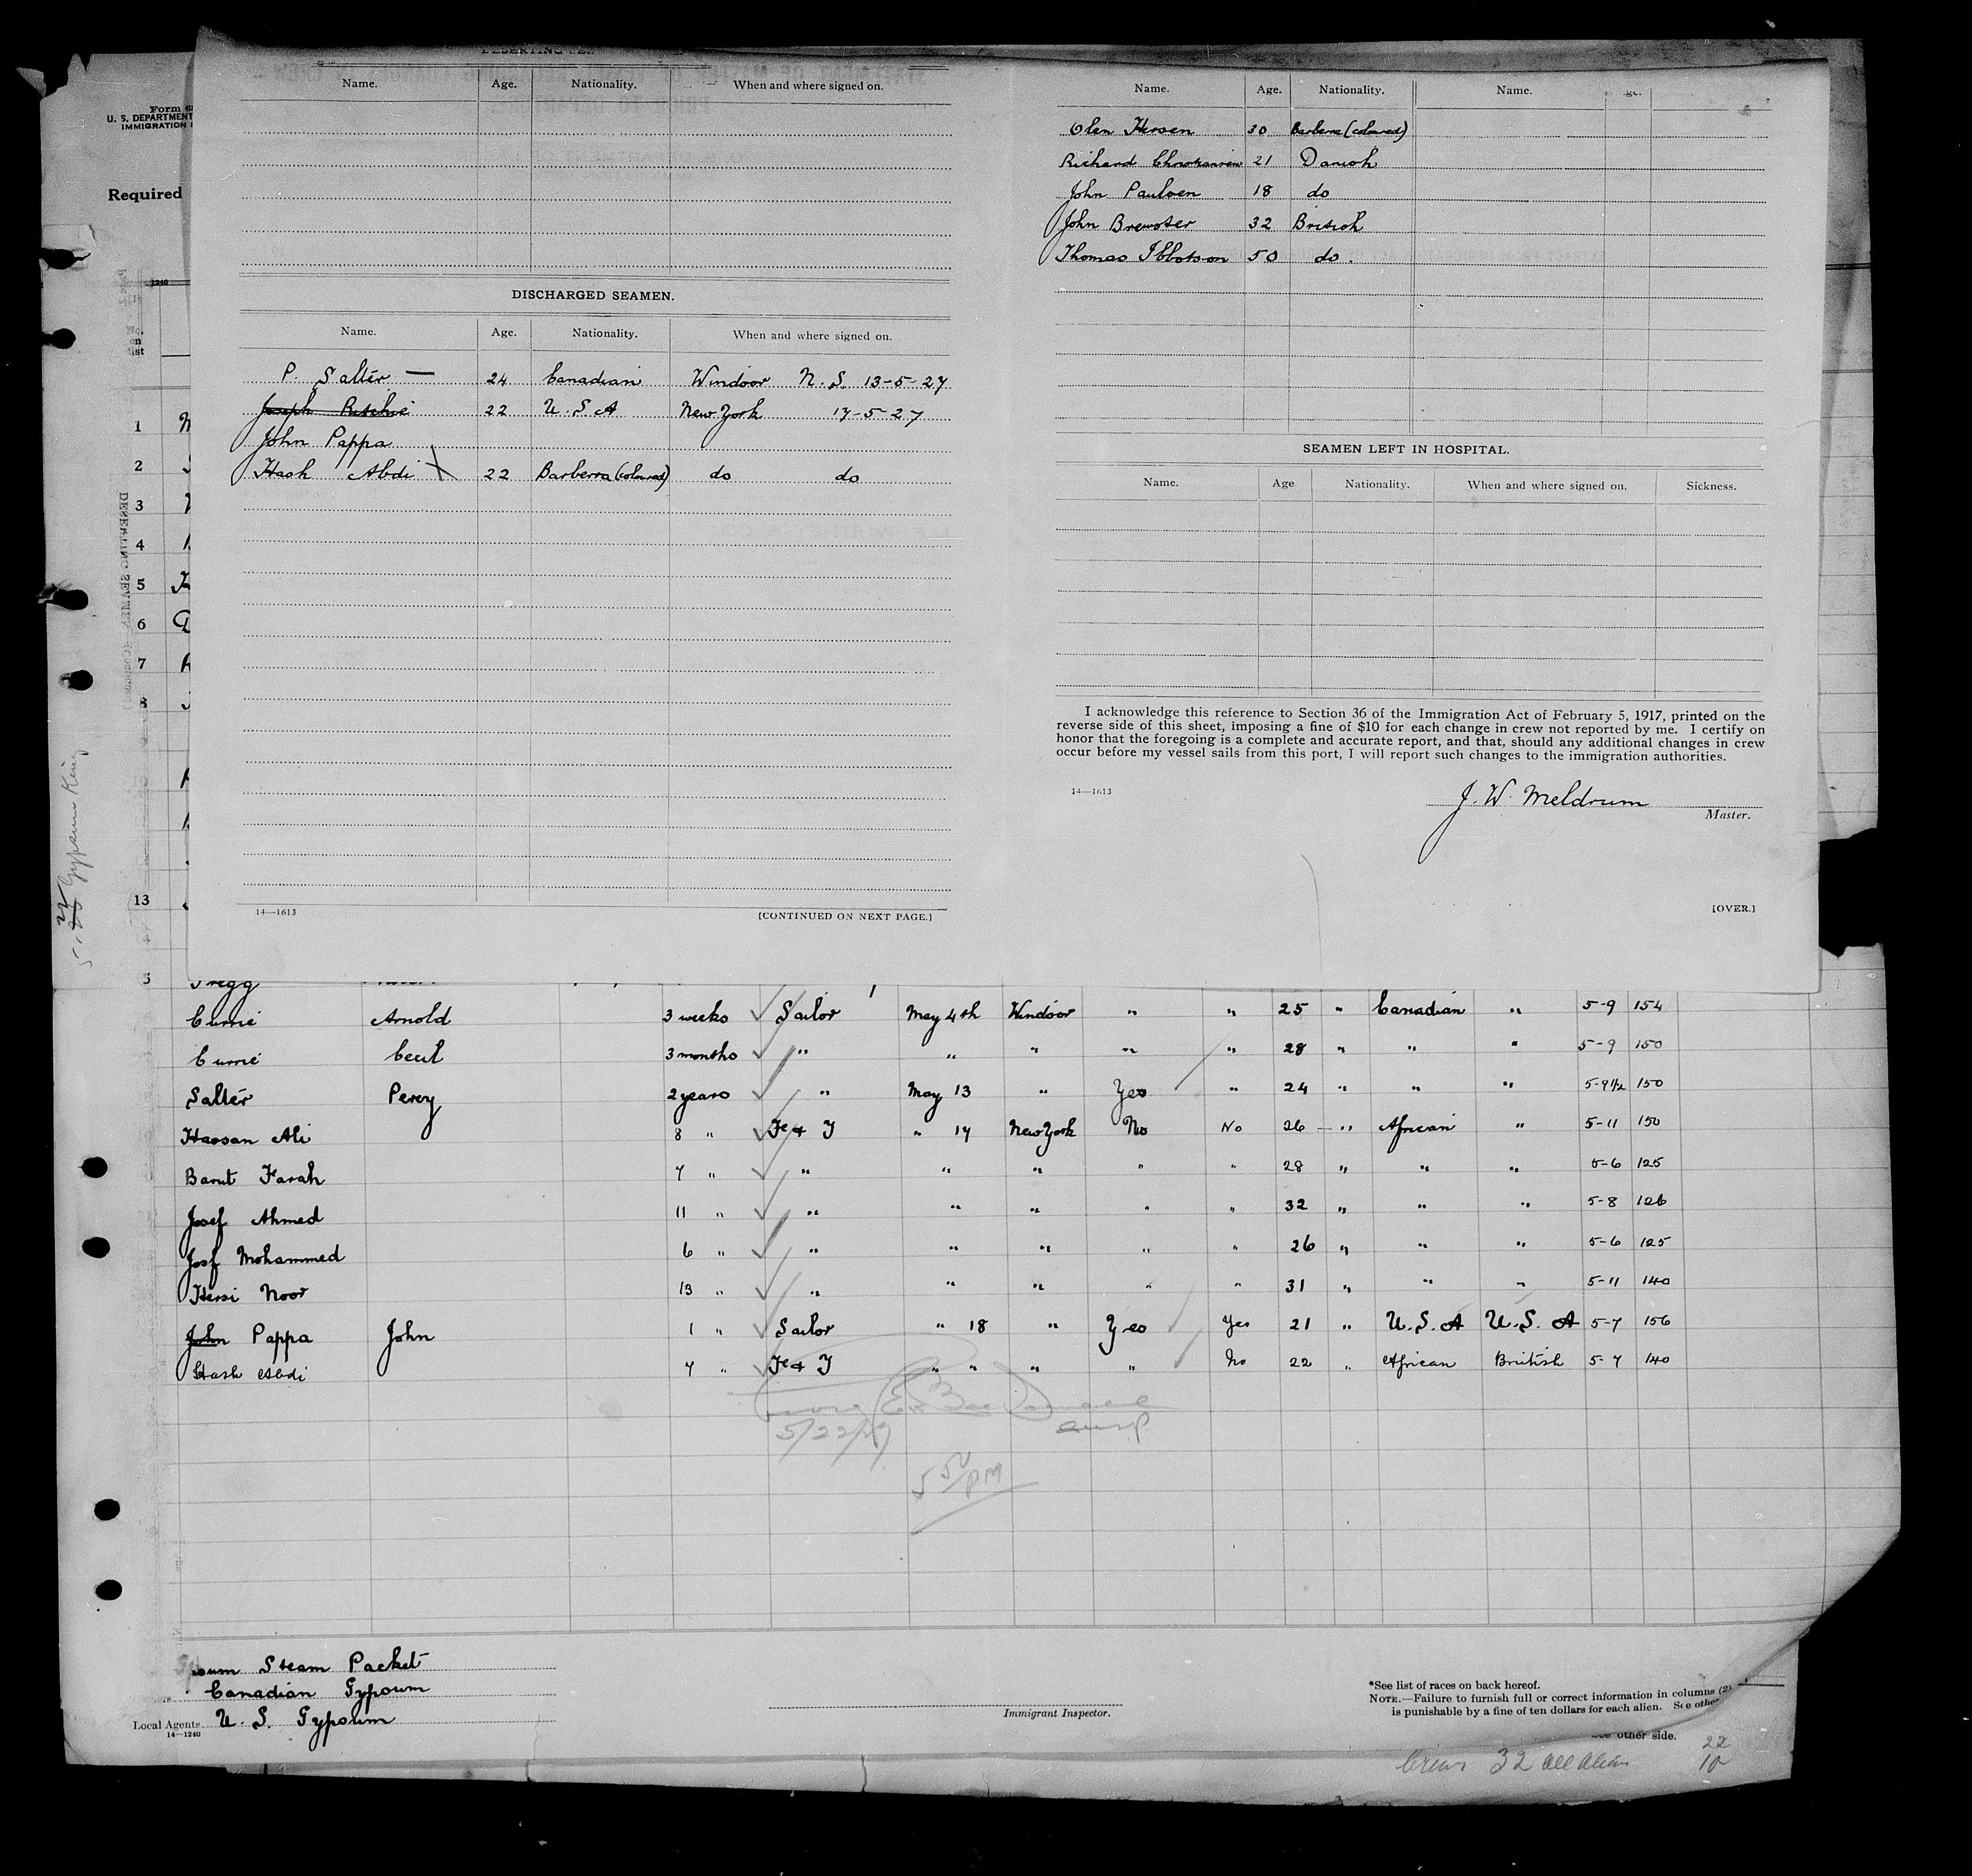 Form 68
U. S. DEPARTMENT
IMMIGRATION
Required
1240
No. on list
DESERTING SEAMEN
Name. Age. Nationality. When and where signed on.
DISCHARGED SEAMEN.
Name. Age. Nationality. When and where signed on.
P. Salter — 24 Canadian Windsor N. S. 13-5-27
Joseph Ritchie 22 U. S. A New York 17-5-27
John Pappa
Hash Abdi 22 Barberra (coloured) do do
14—1613 [CONTINUED ON NEXT PAGE.]
Name. Age. Nationality. Name. Age.
Olen Hersen 30 Barberra (coloured)
Richard Christiansen 21 Danish
John Paulsen 18 do
John Brewster 32 British
Thomas Ibbotson 50 do.
SEAMEN LEFT IN HOSPITAL.
Name. Age Nationality. When and where signed on. Sickness.
I acknowledge this reference to Section 36 of the Immigration Act of February 5, 1917, printed on the
reverse side of this sheet, imposing a fine of $10 for each change in crew not reported by me. I certify on
honor that the foregoing is a complete and accurate report, and that, should any additional changes in crew
occur before my vessel sails from this port, I will report such changes to the immigration authorities.
14—1613
J. W. Meldrum
Master.
[OVER.]
1
2
3
4
5
6
7
8
13
5
Gypsum King
Gregg
Currie Arnold 3 weeks Sailor May 4th Windsor " " 25 " Canadian " 5-9 154
Currie Cecil 3 months " " " " " 28 " " " 5-9 150
Salter Percy 2 years " May 13 " Yes " 24 " " " 5-9 1/2 150
Hassan Ali 8 " F & T " 17 New York No No 26 " African " 5-11 150
Barut Farah 7 " " " " " " 28 " " " 5-6 125
Josef Ahmed 11 " " " " " " 32 " " " 5-8 126
Josf Mohammed 6 " " " " " " 26 " " " 5-6 125
Hersi Noor 13 " " " " " " 31 " " " 5-11 140
John Pappa John 1 " Sailor " 18 " Yes Yes 21 " U. S. A U. S. A 5-7 156
Hash Abdi 7 " F & T " " " " No 22 " African British 5-7 140
5/22/27
5 50/PM
sum Steam Packet
Canadian Gypsum
Local Agents U. S. Gypsum
14—1240
Immigrant Inspector.
*See list of races on back hereof.
NOTE.—Failure to furnish full or correct information in columns (2)
is punishable by a fine of ten dollars for each alien. See other
See other side.
Crew 32 all aliens
22
10